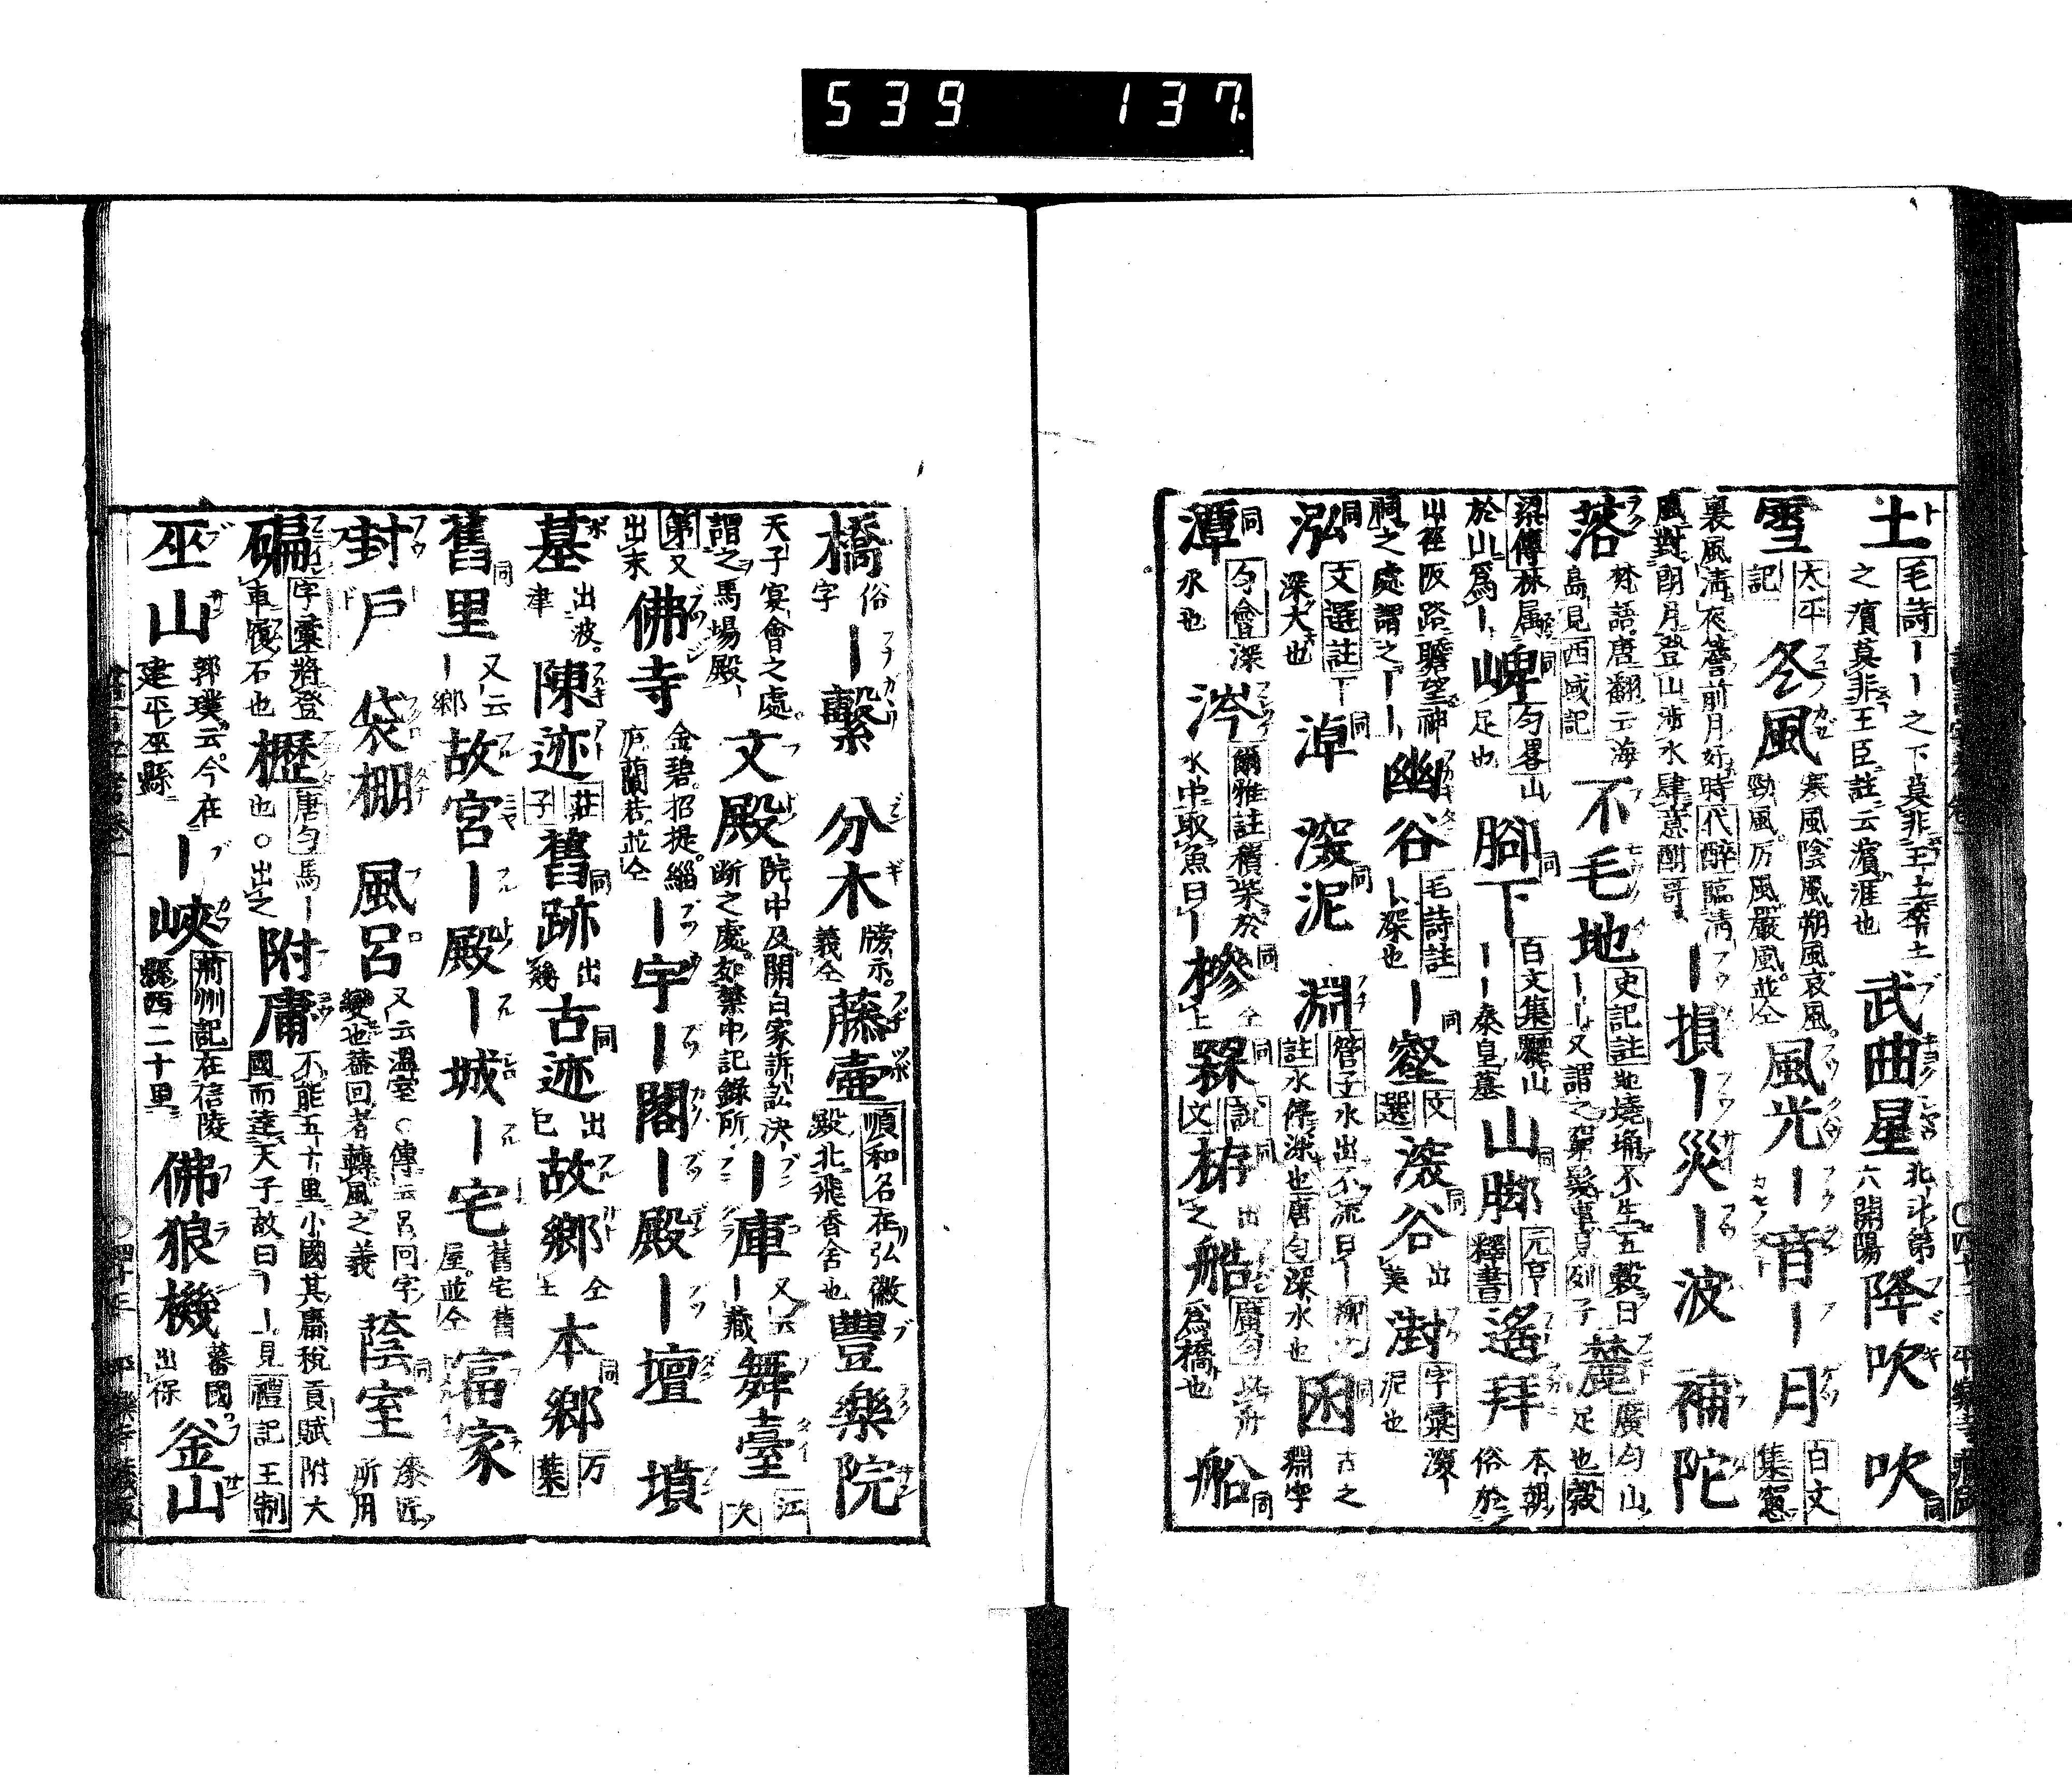 539 137
土 毛詩ーー之下莫非王土率土之濱莫非王臣註云濱涯也 武曲星 北斗第六開陽 降吹 吹 同
雪 太平記 冬風 寒風陰風朔風哀風勁風厉風嚴風並仝 風光ー音ー月 白文集
裏風淸夜簷前月好時代醉臨淸風對朗月登山涉水肆意酣哥 ー損ー災ー波 補陀
落 梵語唐翻云海島見西域記 不毛地 史記註地堯埆不生五穀曰ーー又謂之窮髮 列子 麓 廣匀山足也穀
梁傳林属於山爲ー 崥 同 匀畧山足也 腳下 同 百文集驪山ーー秦皇墓 山脚 同 元亨釋書 遙拜 本朝俗於
山徑阪路瞻望神祠之處謂之ーー 幽谷 毛詩註ー深也 ー壑 同 文選 深谷 同 出美 澍 字彙深泥也
泓 同 文選註下深大也 淖 同 深泥 同 淵 管子水出不流曰ー 註水停深也唐匀深水也 囦 同 古之淵字
潭 同 匀會深水也 涔 爾雅註積柴於水中取魚曰ー 槮 同 仝上 罧 同 說文 栫 同 出之 船 廣匀 爲橋也 船 同
橋 俗字 ー繫 分木 牓示義仝 藤壷 順和名在弘徽殿北飛香舍也 豐樂院
天子宴會之處謂之馬場殿 文殿 院中及關白家訴訟決断之處如禁中記錄所 ー庫 又云ー藏 舞臺 江次
第又出末 佛寺 金碧招提緇庐蘭若並仝 ー宇ー閣ー殿ー壇 墳
墓 出波津 陳迹 莊子 舊跡 同 出幾 古迹 同 出巳 故鄉 仝上 本鄉 同 万葉
舊里 同 又云ー鄉 故宮ー殿ー城ー宅 舊宅舊屋並仝 富家
封戸 袋棚 風呂 又云温室○傳云呂回字變也葢回者轉風之義 蔭室 同 漆匠所用
碥 字彙將登車履石也 櫪 唐匀馬ー也○出之 附庸 不能五十里小國其庸稅貢賦附大國而達天子故曰ーー見禮記王制
巫山 郭璞云今在建平巫縣 ー峽 荊州記在信陵縣西二十里 佛狼機 蕃國出保 釜山